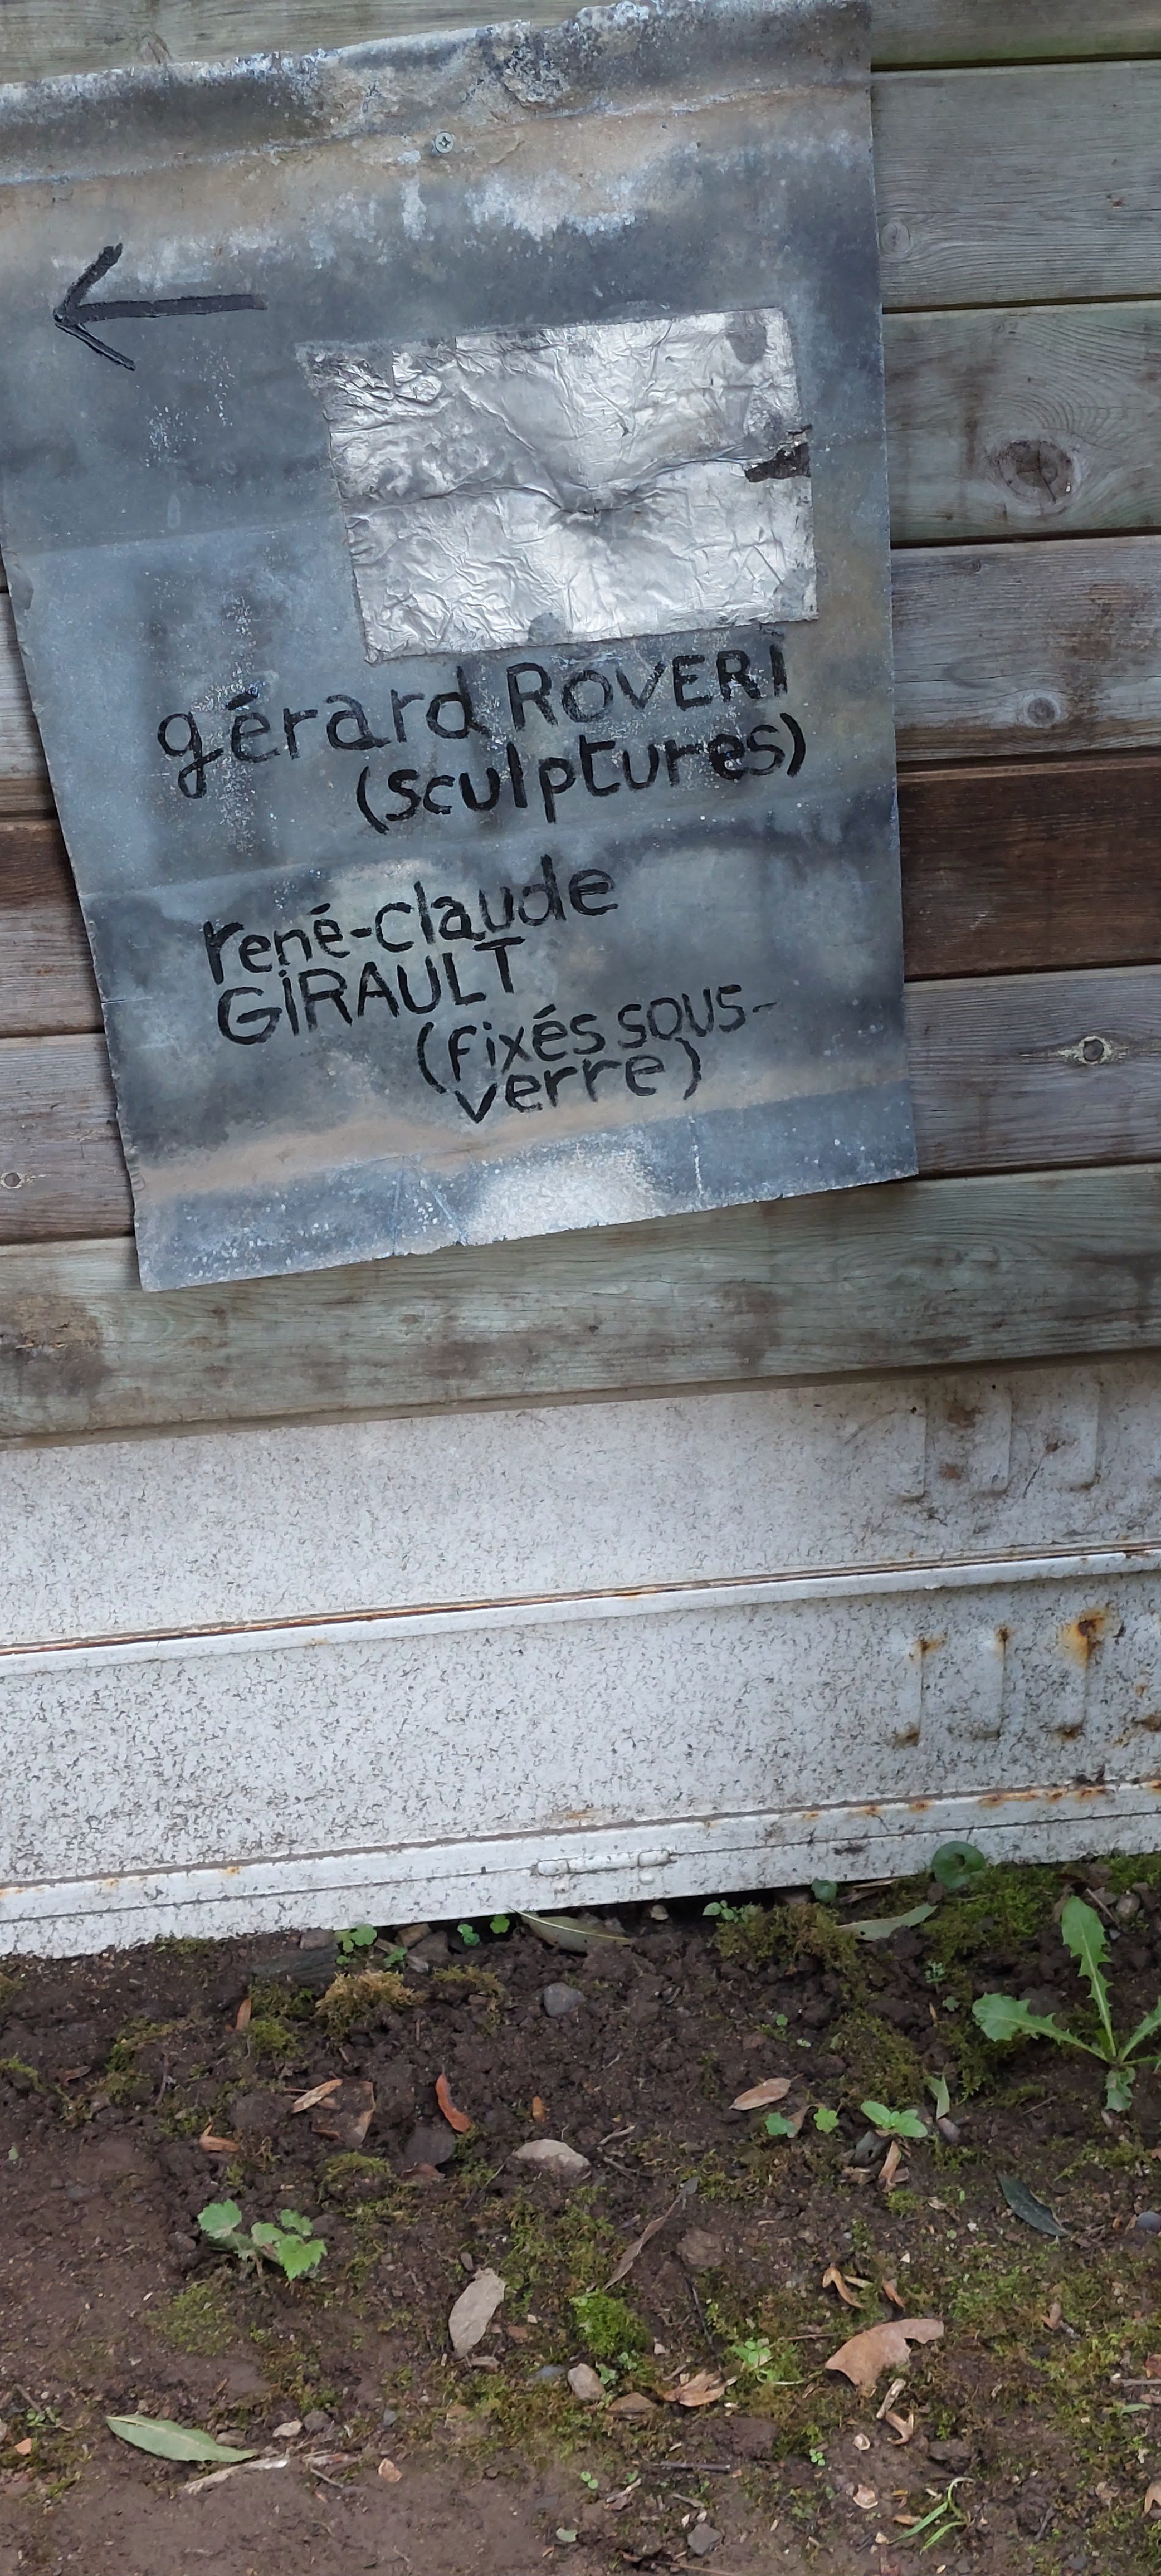 gérard ROVERI
(sculptures)
rené-claude
GIRAULT
(fixés sous-
verre)